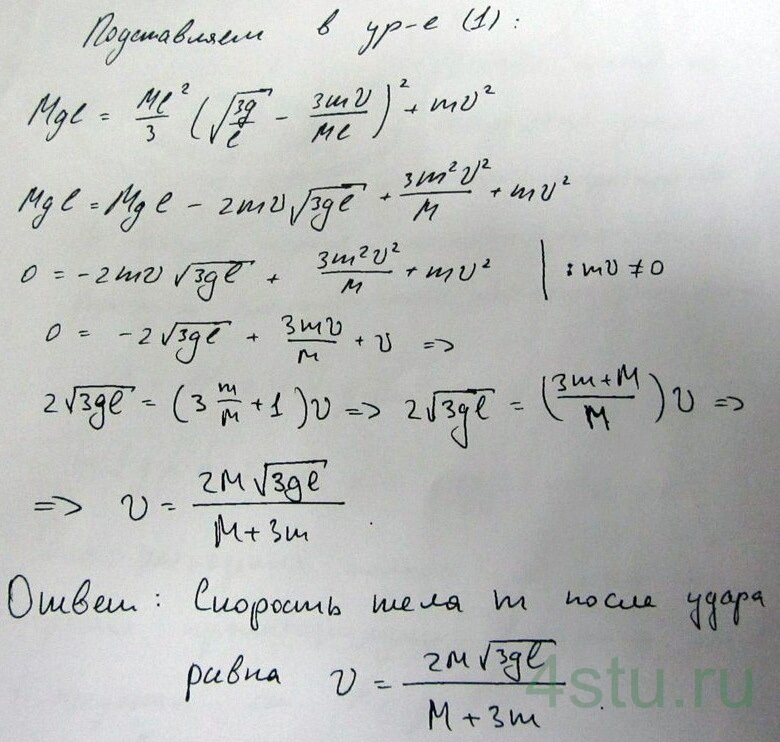 Подставляем в ур-е (1):
Mgl = Ml²/3 (√(3g/l) - 3mυ/Ml)² + mυ²
Mgl = Mgl - 2mυ√3gl + 3m²υ²/M + mυ²
0 = -2mυ √3gl + 3m²υ²/M + mυ² | : mυ ≠ 0
0 = -2√3gl + 3mυ/M + υ =>
2√3gl = (3 m/M + 1)υ => 2√3gl = (3m+M/M)υ =>
=> υ = 2M√3gl / M+3m .
Ответ: Скорость тела m после удара
равна υ = 2M√3gl / M+3m .
4stu.ru